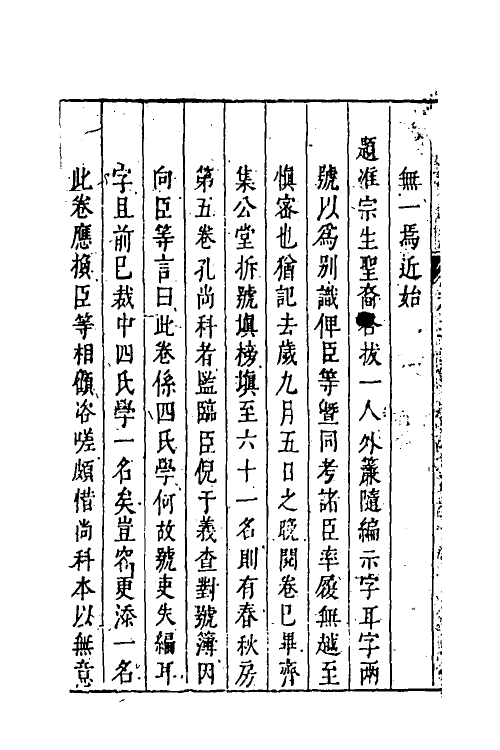 無一焉近始
題准宗生聖裔各拔一人外簾隨編示字耳字兩
號以爲別識俾臣等暨同考諸臣率履無越至
慎密也猶記去歲九月五日之晚閱卷巳畢齊
集公堂拆號填榜填至六十一名則有春秋房
第五卷孔尚科者監臨臣倪于義查對號簿因
向臣等言曰此卷係四氏學何故號吏失編耳
字且前已裁中四氏學一名矣豈容更添一名
此卷應換臣等相顧咨嗟頗惜尚科本以無意